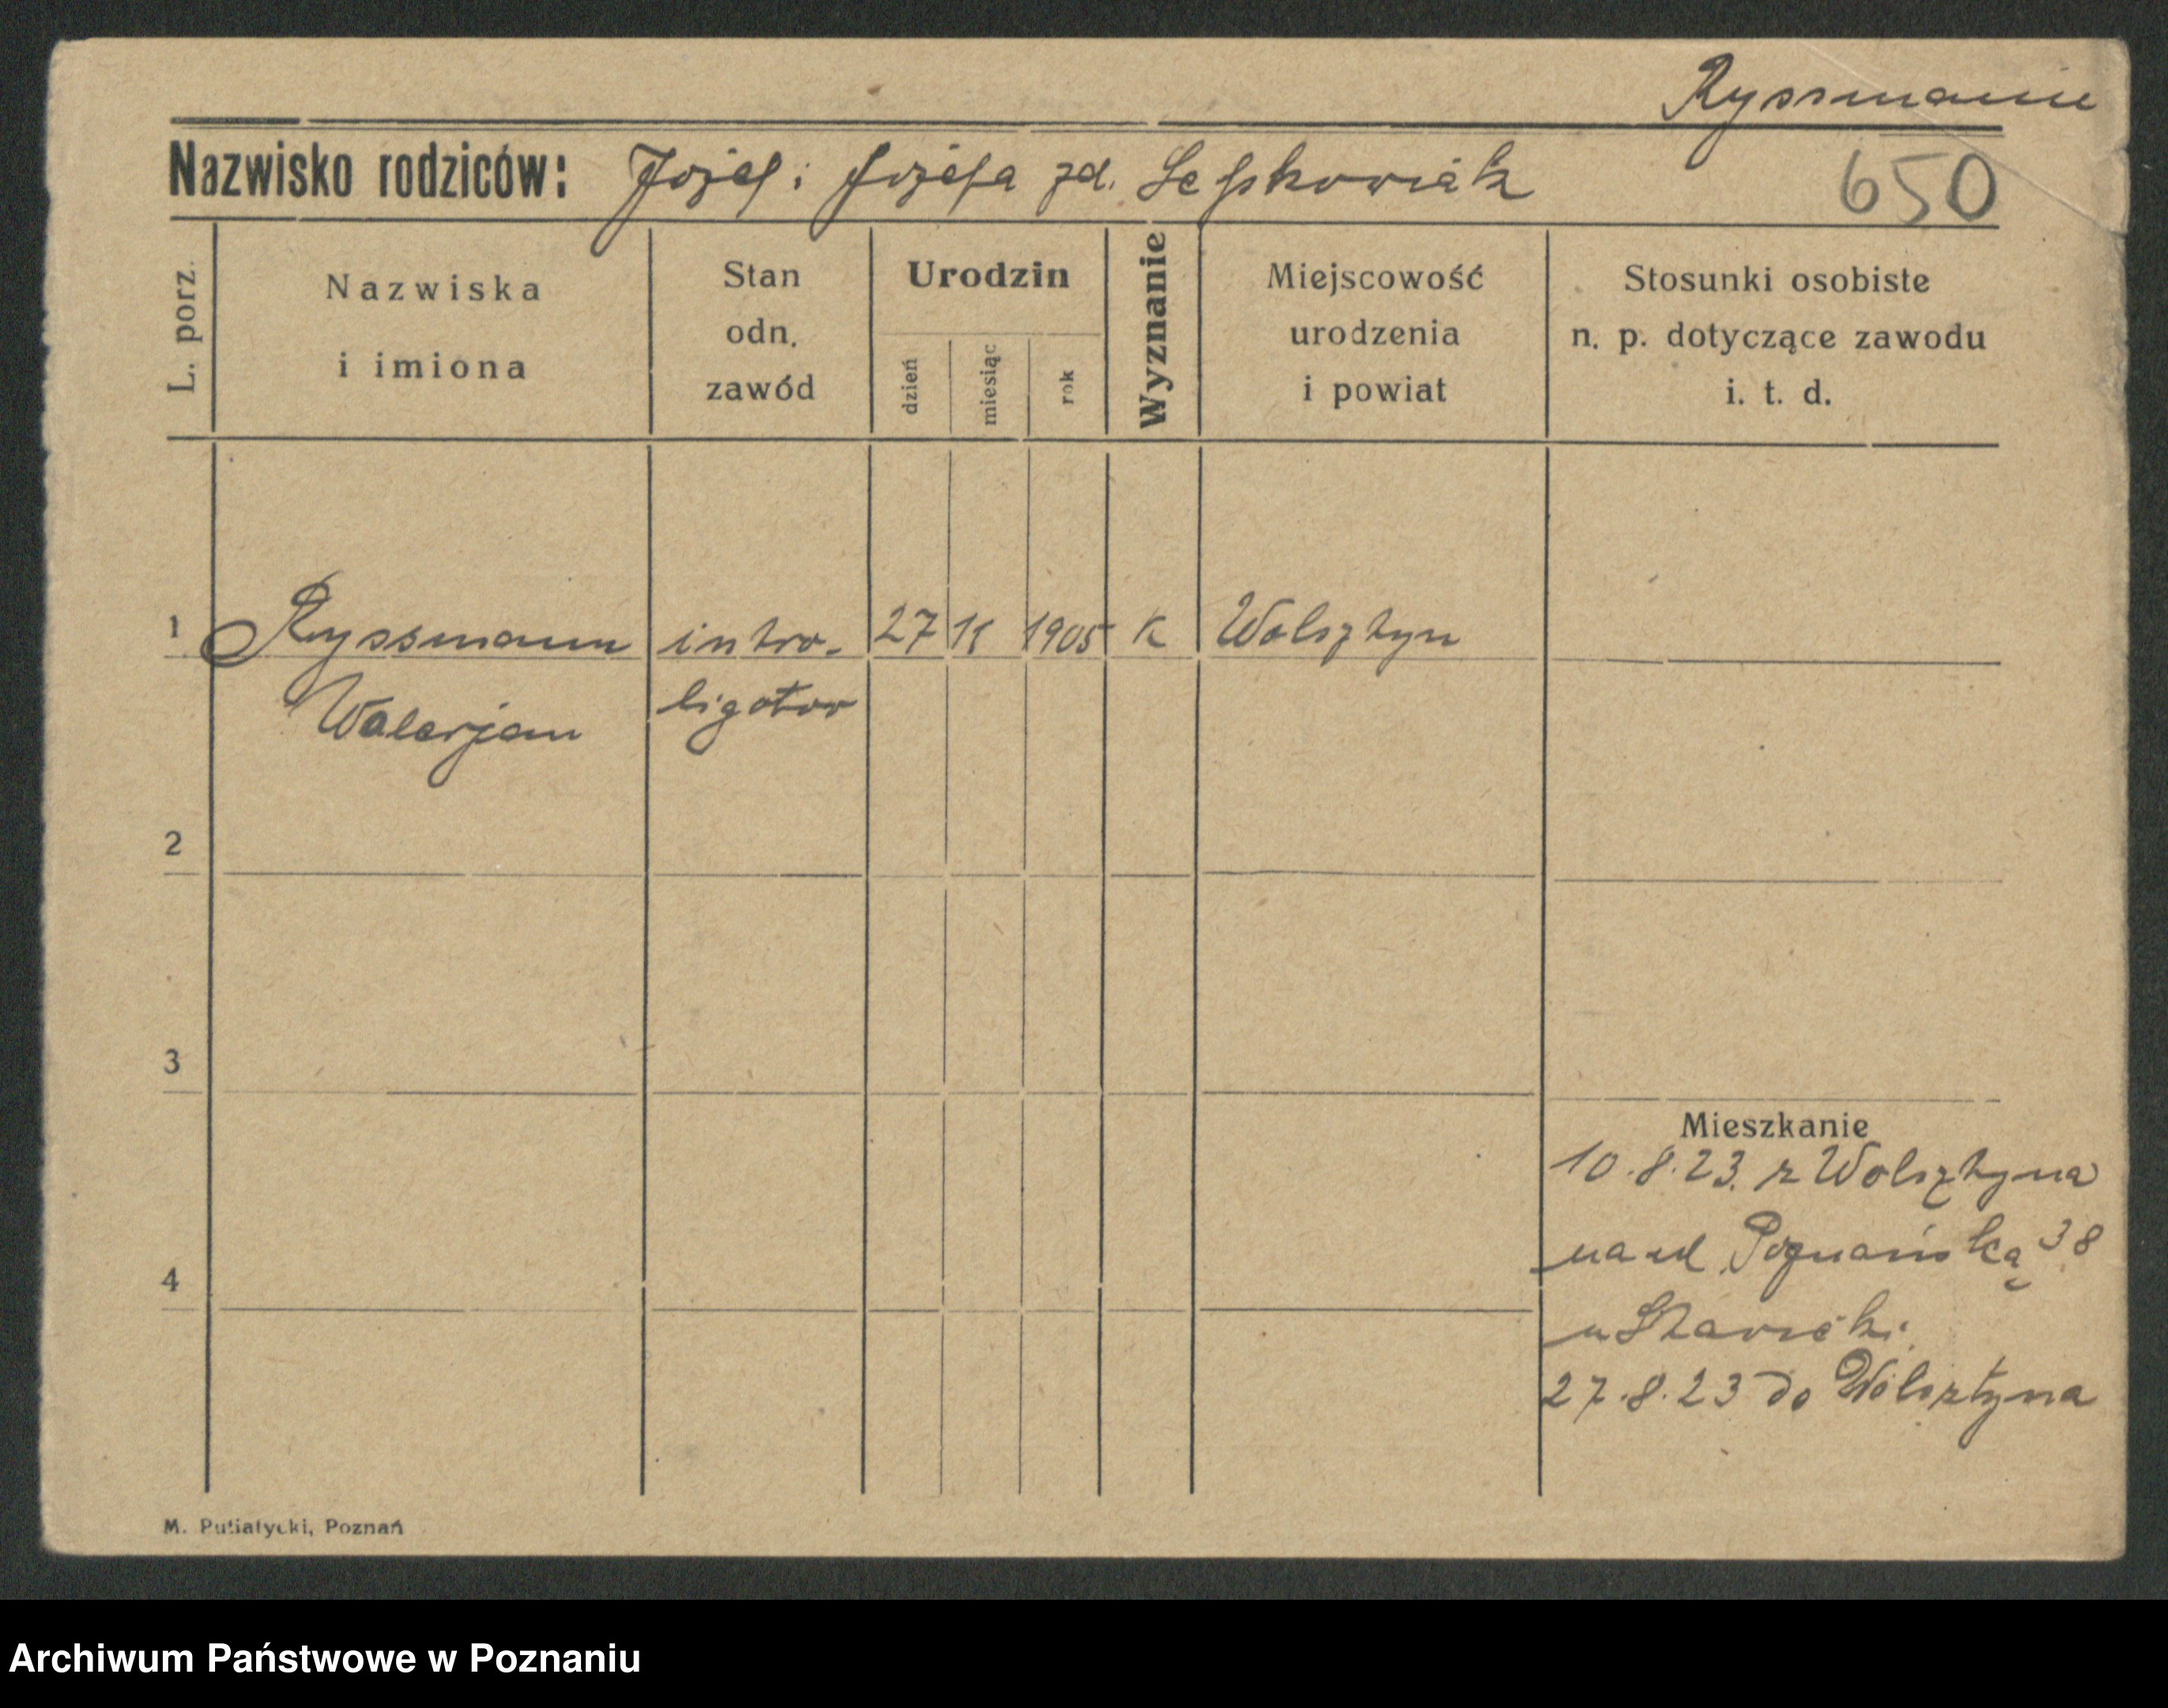 Ryssmann
Nazwisko rodziców: Jozef i Jozefa zd. Lepkowiak
650
L. porz.
Nazwiska
i imiona
Stan
odn.
zawód
Urodzin
dzień
miesiąc
rok
Wyznanie
Miejscowość
urodzenia
i powiat
Stosunki osobiste
n. p. dotyczące zawodu
i. t. d.
1 Ryssmann intro- 27 1905 K Wolsztyn
Walerjan ligator
2
3
Mieszkanie
10.8.23. z Wolsztyna
na ul. Poznańską 38
4
u
27.8.23 do Wolsztyna
M. Putiatycki, Poznań
Archiwum Państwowe w Poznaniu